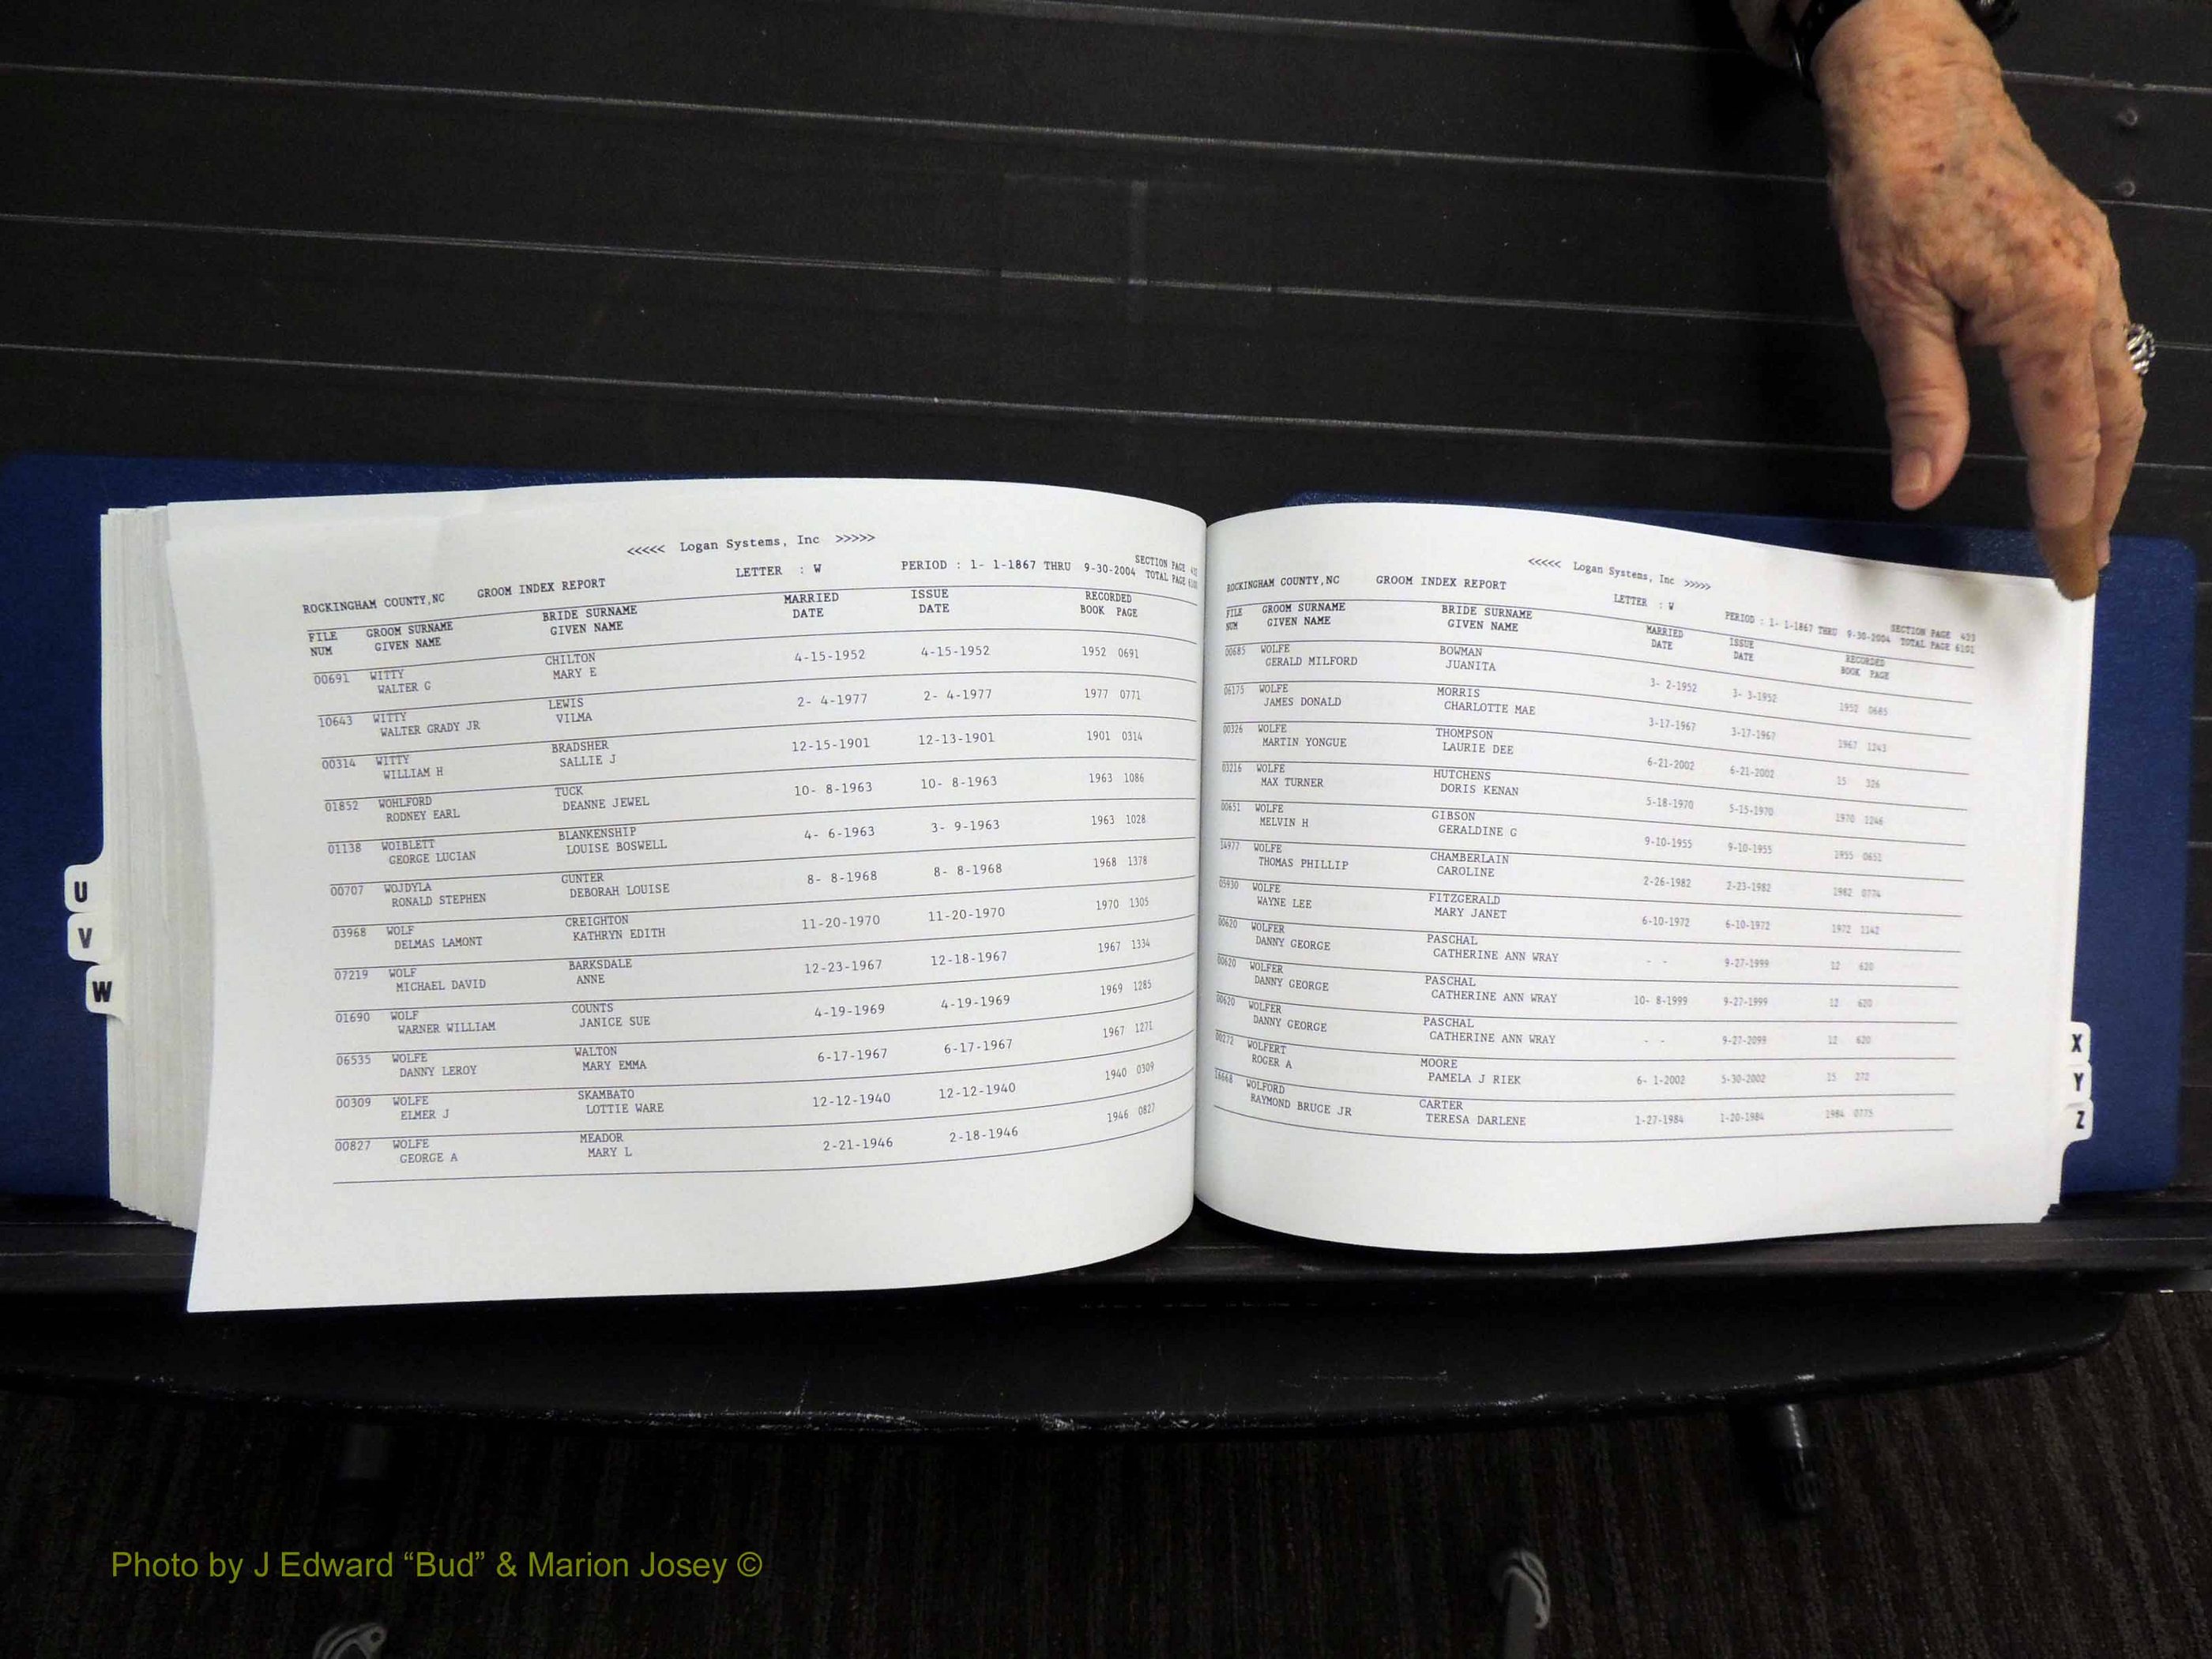 <<<<< Logan Systems, Inc >>>>>
ROCKINGHAM COUNTY,NC GROOM INDEX REPORT LETTER : W PERIOD : 1- 1-1867 THRU 9-30-2004 SECTION PAGE
TOTAL PAGE
FILE GROOM SURNAME BRIDE SURNAME MARRIED ISSUE RECORDED
NUM GIVEN NAME GIVEN NAME DATE DATE BOOK PAGE
00691 WITTY CHILTON 4-15-1952 4-15-1952 1952 0691
WALTER G MARY E
10643 WITTY LEWIS 2- 4-1977 2- 4-1977 1977 0771
WALTER GRADY JR VILMA
00314 WITTY BRADSHER 12-15-1901 12-13-1901 1901 0314
WILLIAM H SALLIE J
01852 WOHLFORD TUCK 10- 8-1963 10- 8-1963 1963 1086
RODNEY EARL DEANNE JEWEL
01138 WOIBLETT BLANKENSHIP 4- 6-1963 3- 9-1963 1963 1028
GEORGE LUCIAN LOUISE BOSWELL
00707 WOJDYLA GUNTER 8- 8-1968 8- 8-1968 1968 1378
RONALD STEPHEN DEBORAH LOUISE
03968 WOLF CREIGHTON 11-20-1970 11-20-1970 1970 1305
DELMAS LAMONT KATHRYN EDITH
07219 WOLF BARKSDALE 12-23-1967 12-18-1967 1967 1334
MICHAEL DAVID ANNE
01690 WOLF COUNTS 4-19-1969 4-19-1969 1969 1285
WARNER WILLIAM JANICE SUE
06535 WOLFE WALTON 6-17-1967 6-17-1967 1967 1271
DANNY LEROY MARY EMMA
00309 WOLFE SKAMBATO 12-12-1940 12-12-1940 1940 0309
ELMER J LOTTIE WARE
00827 WOLFE MEADOR 2-21-1946 2-18-1946 1946 0827
GEORGE A MARY L
U
V
W
<<<<< Logan Systems, Inc >>>>>
ROCKINGHAM COUNTY,NC GROOM INDEX REPORT LETTER : W PERIOD : 1- 1-1867 THRU 9-30-2004 SECTION PAGE
TOTAL PAGE
FILE GROOM SURNAME BRIDE SURNAME MARRIED ISSUE RECORDED
NUM GIVEN NAME GIVEN NAME DATE DATE BOOK PAGE
00685 WOLFE BOWMAN 3- 2-1952 3- 3-1952 1952 0685
GERALD MILFORD JUANITA
06175 WOLFE MORRIS 3-17-1967 3-17-1967 1967 1243
JAMES DONALD CHARLOTTE MAE
00326 WOLFE THOMPSON 6-21-2002 6-21-2002 15 326
MARTIN YONGUE LAURIE DEE
03216 WOLFE HUTCHENS 5-18-1970 5-15-1970 1970 1246
MAX TURNER DORIS KENAN
00651 WOLFE GIBSON 9-10-1955 9-10-1955 1955 0651
MELVIN H GERALDINE G
14977 WOLFE CHAMBERLAIN 2-26-1982 2-23-1982 1982 0774
THOMAS PHILLIP CAROLINE
05930 WOLFE FITZGERALD 6-10-1972 6-10-1972 1972 1142
WAYNE LEE MARY JANET
00620 WOLFER PASCHAL - - 9-27-1999 12 620
DANNY GEORGE CATHERINE ANN WRAY
00620 WOLFER PASCHAL 10- 8-1999 9-27-1999 12 620
DANNY GEORGE CATHERINE ANN WRAY
00620 WOLFER PASCHAL - - 9-27-2099 12 620
DANNY GEORGE CATHERINE ANN WRAY
00272 WOLFERT MOORE 6- 1-2002 5-30-2002 15 272
ROGER A PAMELA J RIEK
16668 WOLFORD CARTER 1-27-1984 1-20-1984 1984 0775
RAYMOND BRUCE JR TERESA DARLENE
X
Y
Z
Photo by J Edward “Bud” & Marion Josey ©